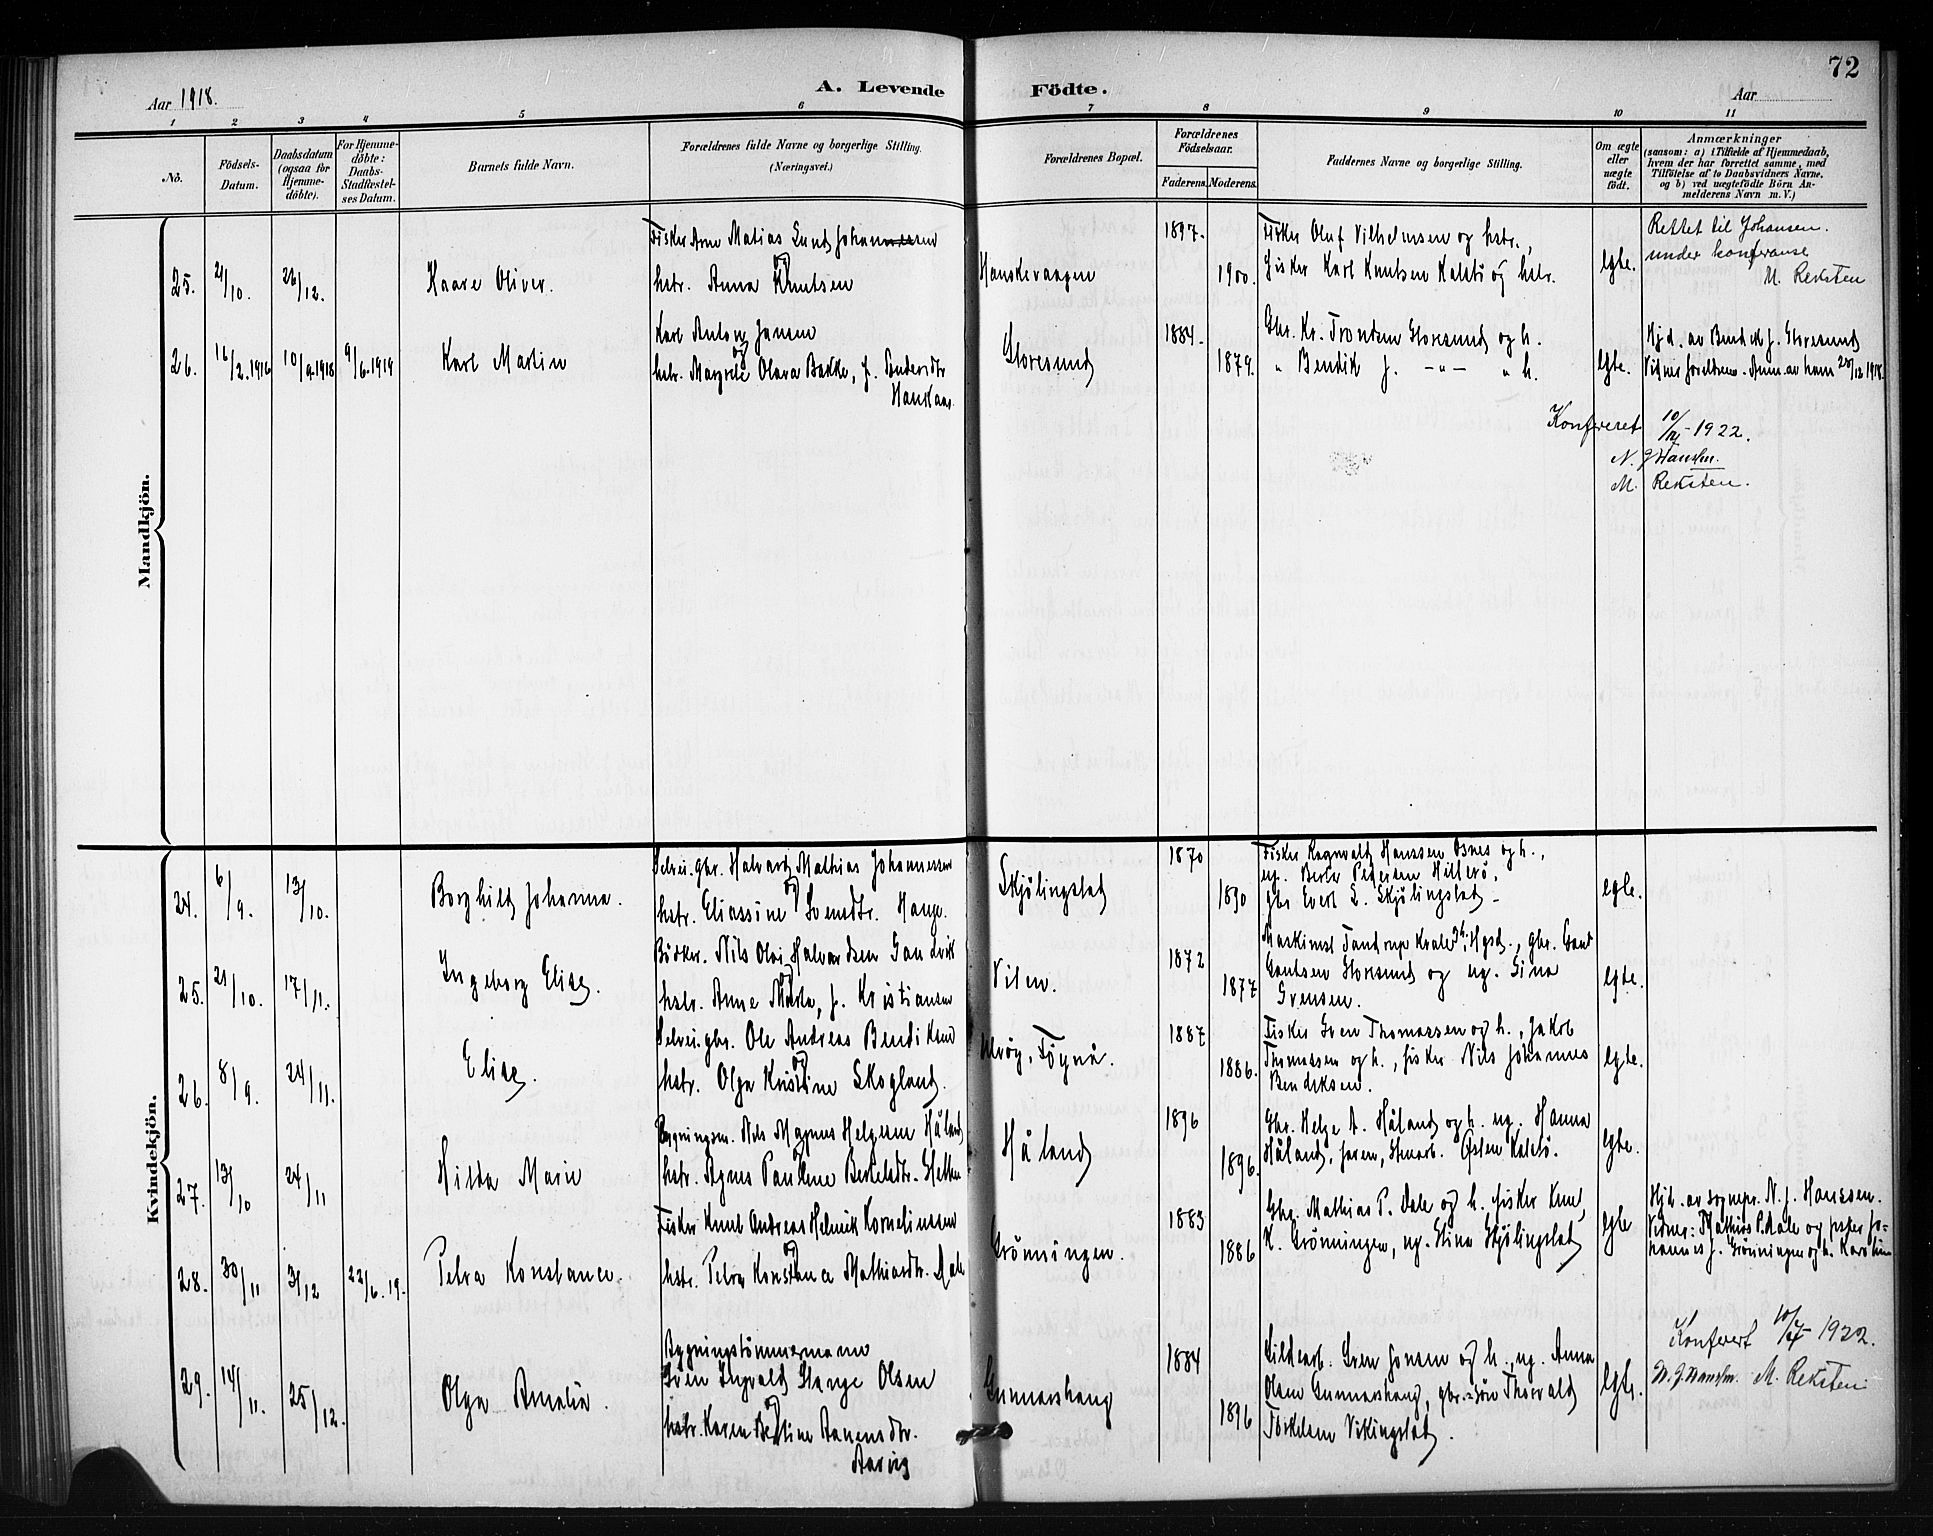 72
Aar 1918.
A. Levende Födte.
Aar
1 2 3 4 5 6 7 8 9 10 11
No.
Födsels-
Datum.
Daabsdatum
(ogsaa for
Hjemme-
döbte).
For Hjemme-
döbte:
Daabs-
Stadfæstel-
ses Datum.
Barnets fulde Navn.
Forældrenes fulde Navne og borgerlige Stilling.
(Næringsvei.)
Forældrenes Bopæl.
Forældrenes
Födselsaar.
Faderens. Moderens.
Faddernes Navne og borgerlige Stilling.
Om ægte
eller
uægte
födt.
Anmærkninger
(saasom: a) i Tilfælde af Hjemmedaab,
hvem der har forrettet samme, med
Tilföielse af to Daabsvidners Navne,
og b) ved uægtefödte Börn An-
melderens Navn m. V.)
Mandkjön.
25. 21/10. 26/12. Kaare Oliver.
Fisker Arne Matias Lund Johannessen
og
hstr. Anna Knutsen
Hanskevaagen
1897.
1900.
Fisker Oluf Vilhelmsen og hstr.,
Fisker Karl Knutsen Kalstö og hstr.
Egte.
Rettet til Johansen.
under konferanse
M. Reksten
26. 16/2.1916 10/9.1918 9/6.1919 Karl Martin
Karl Anton Jansen
og
hstr. Margrete Olava Bakke, f. Sandersdtr
Hanskaas.
Storesund
1884.
1879.
Gbr. Kr. Trondsen Storesund og h.
" Bendik J. -"- " h.
Egte.
Hjd. av Bendik J. Storesund
Vidner foreldrene. Anm. av ham 20/12 1918.
Konfereret 10/ -1922.
N. J. Hanssen.
M. Reksten.
Kvindekjön.
24. 6/9. 13/10. Borghild Johanna.
Selvei. gbr. Halvard Mathias Johannessen
og
hstr. Eliassine Svensdtr. Hauge.
Skjölingstad
1870
1890
Fisker Ragnvald Hanssen Osnes og h.,
ug. Berta Pedersen Hilleö,
gbr Evert L. Skjölingstad -
Egte.
25. 21/10. 17/11. Ingeborg Elise.
Bödker. Nils Olai Halvardsen Sandvik
og
hstr. Anne Marta, f. Kristiansen
Visen.
1872
1877
Maskinist Tandrup Hgsd., gbr. Gaut
Gautsen Storesund og ug. Gina
Svensen.
Egte.
26. 8/9. 24/11. Elise.
Selvei. gbr. Ole Andreas Bendiksen
og
hstr. Olga Kristine Skogland.
Föynå.
1887
1886.
Fisker Sven Thomassen og h., Jakob
Thomassen og h., fisker Nils Johannes
Bendiksen.
Egte.
27. 13/10 24/11 Hilda Marie
Bygningsm. Nils Magnus Helgesen Håland
og
hstr. Agnes Pauline Berteldtr.
Håland
1896
1896.
Gbr. Helge A. Håland og h. ug. Hanna
Håland, Östen Kalstö.
Egte.
28. 30/11 31/12 22/6.19. Petra Konstance.
Fisker Knut Andreas Helmik Kornelinssen
og
hstr. Petra Konstance Mathiasdtr. Dale
Grönningen
1883
1886
Gbr. Mathias P. Dale og h. fisker Knut
K. Grönningen, ug. Stina Skjölingstad
Egte
Hjd. av sognepr. N. J. Hanssen.
Vidner: Mathias P. Dale og fisker Jo-
hannes J. Grönningen og h. Karoline
29. 14/11. 25/12. Olga Amalia.
Bygningstömmermann
Sven Ingvald Stange Olsen
og
hstr. Karen Bertine Aanensdtr.
Aarvig
Gunnarshaug
1884
1896
Sildearb. Sven Jonsen og h., ug. Anna
Olsen Gunnarshaug, gbr.sön Thorvald
Torkelsen Vikingstad.
Egte.
Konferert 10/ 1922.
N. J. Hanssen. M. Reksten